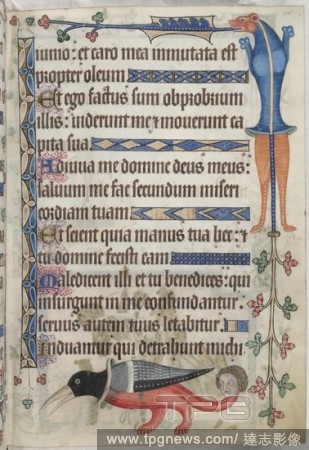 iunio: et caro mea immutata est
propter oleum
Et ego factus sum obprobrium
illis: uiderunt me et mouerunt ca
pita sua
Adiuua me domine deus meus:
saluum me fac secundum miseri
cordiam tuam
Et scient quia manus tua hec: et
tu domine fecisti eam
Maledicent illi et tu benedices: qui
insurgunt in me confundantur.
seruus autem tuus letabitur.
Induantur qui detrahunt michi
TPG
www.tpgnews.com/達志影像